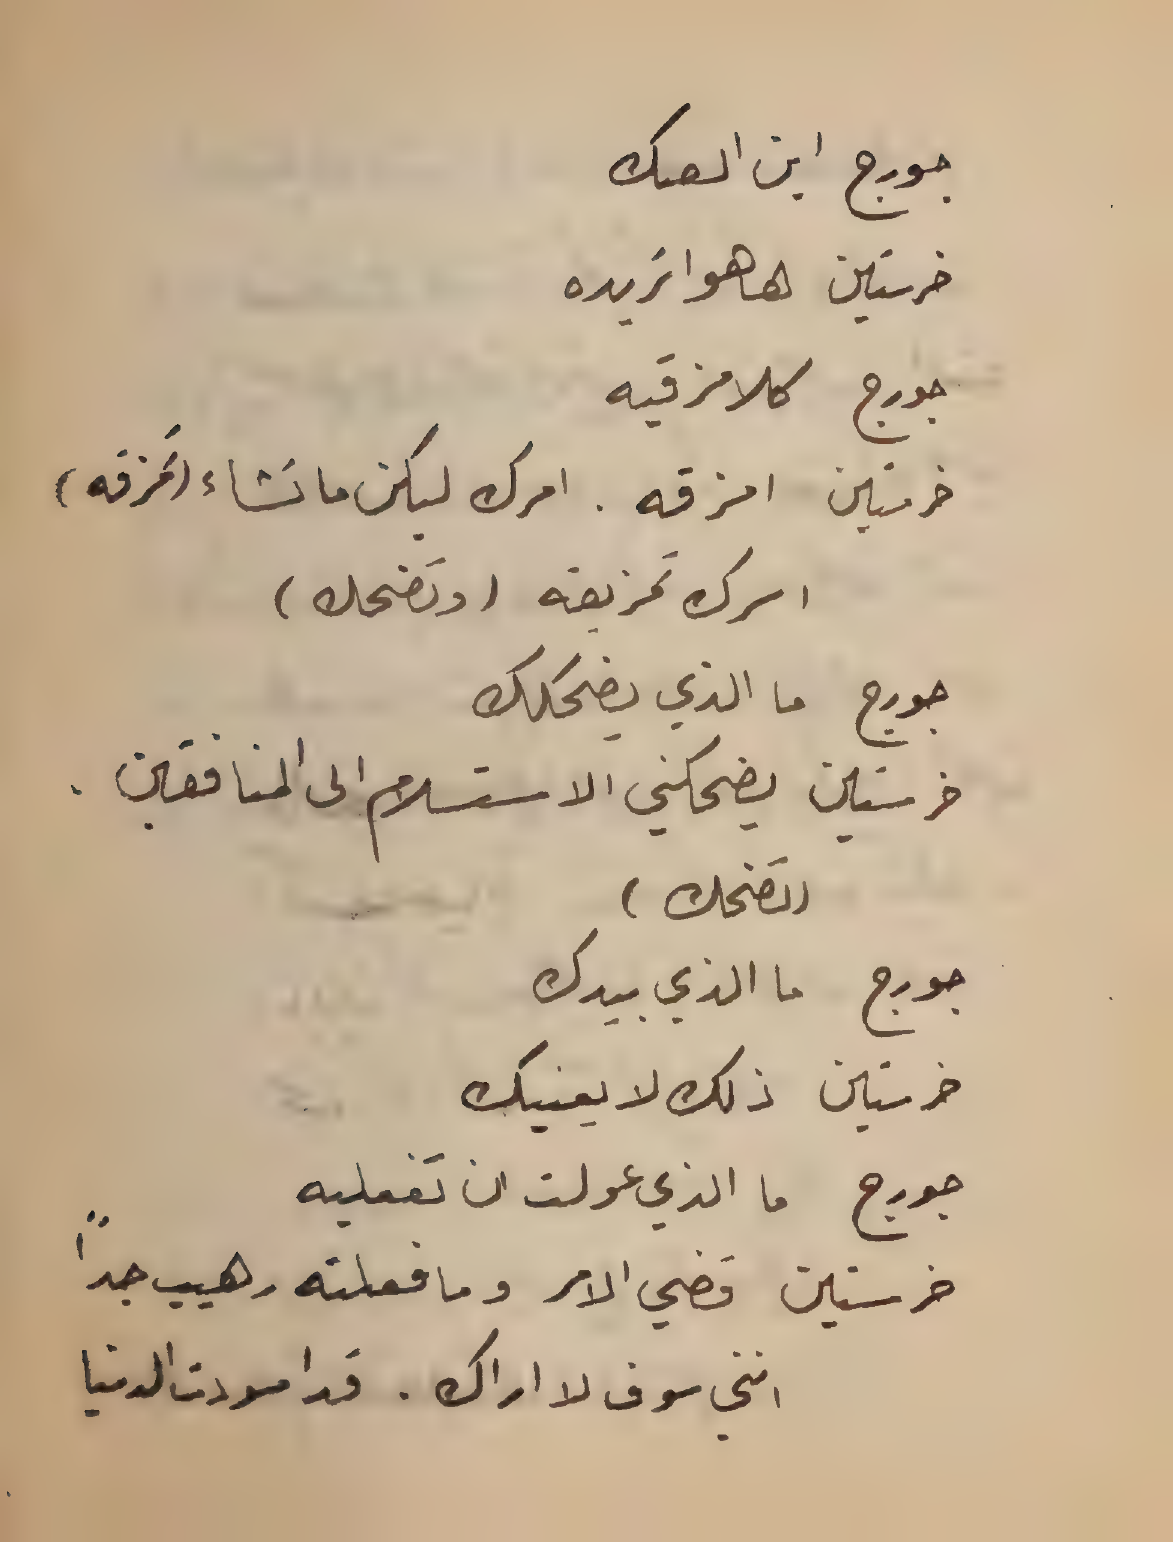 جورج اين الصك
خرستين هاهو اتريده
جورج كلا مزقيه
خرستين امزقه . امرك ليكن ما تشاء (تمزقه)
اسرك تمزيقه (وتضحك)
جورج ما الذي يضحكك
خرستين يضحكني الاستسلام الى المنافقين .
(تضحك)
جورج ما الذي بيدك
خرستين ذلك لا يعنيك
جورج ما الذي عولت ان تفعليه
خرستين قضي الامر وما فعلته رهيب جداً
انني سوف لا اراك . قد اسودت الدنيا